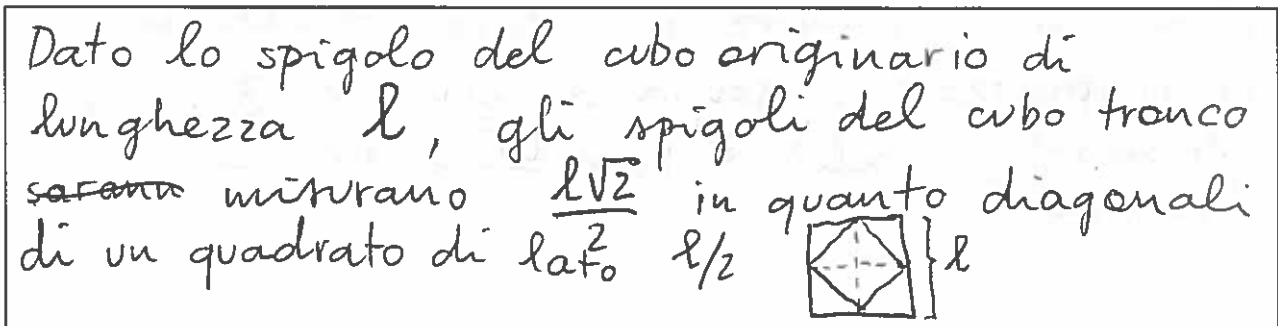 Dato lo spigolo del cubo originario di
lunghezza l, gli spigoli del cubo tronco
misurano l√2/2 in quanto diagonali
di un quadrato di lato l/2 l